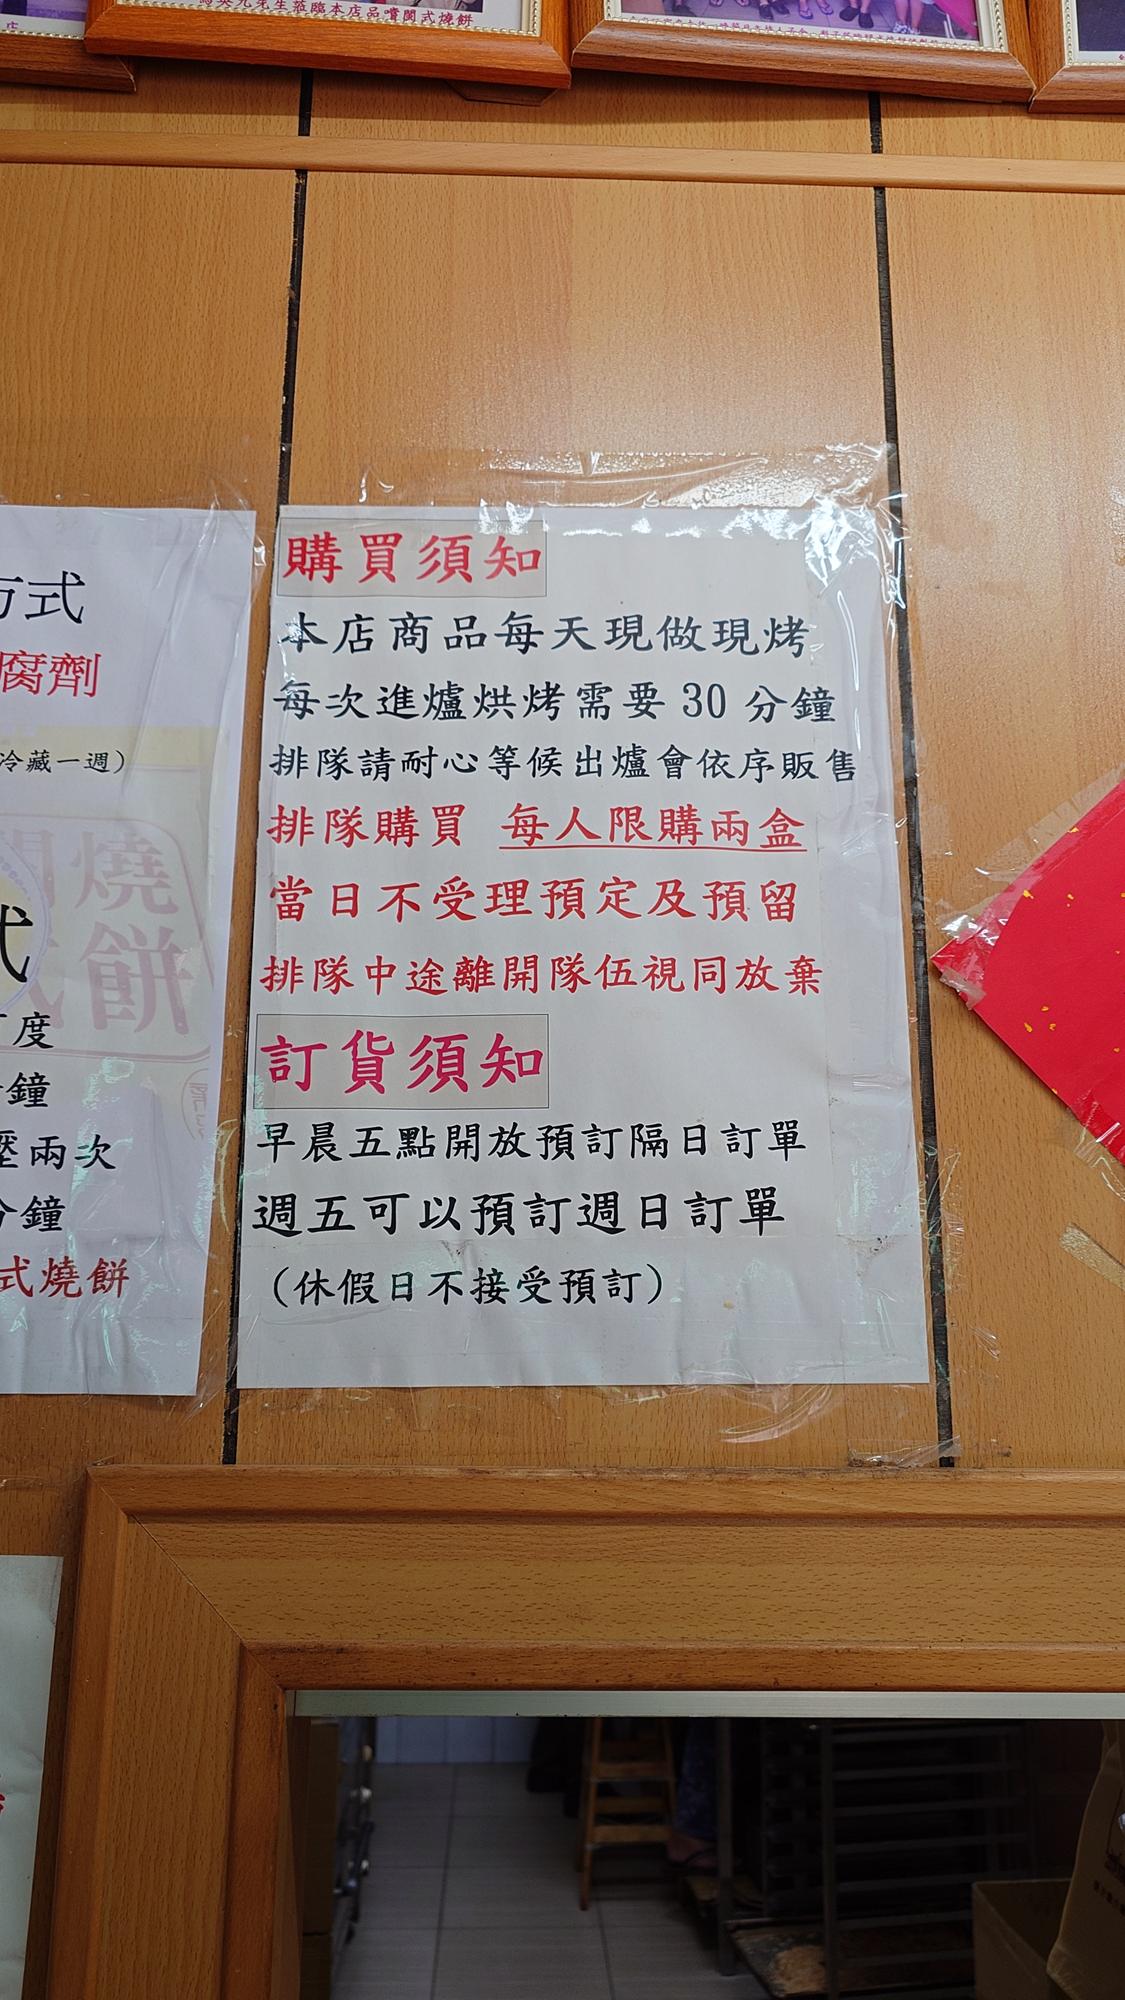 馬英九先生蒞臨本店品嚐閩式燒餅
方式
腐劑
冷藏一週)
燒
式
餅
度
鐘
壓兩次
分鐘
式燒餅
購買須知
本店商品每天現做現烤
每次進爐烘烤需要 30 分鐘
排隊請耐心等候出爐會依序販售
排隊購買 每人限購兩盒
當日不受理預定及預留
排隊中途離開隊伍視同放棄
訂貨須知
早晨五點開放預訂隔日訂單
週五可以預訂週日訂單
(休假日不接受預訂)